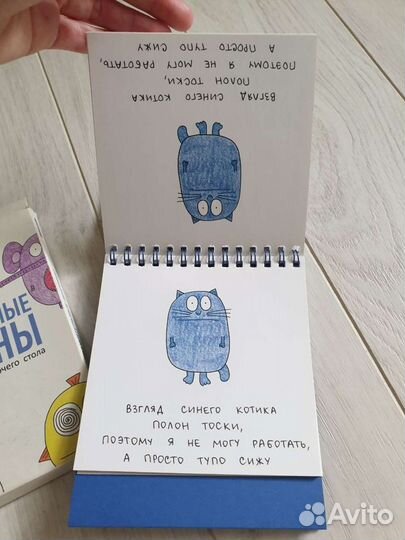 А ПРОСТО ТУПО СИЖУ
ПОЭТОМУ Я НЕ МОГУ РАБОТАТЬ,
ПОЛОН ТОСКИ,
ВЗГЛЯД СИНЕГО КОТИКА
ВЗГЛЯД СИНЕГО КОТИКА
ПОЛОН ТОСКИ,
ПОЭТОМУ Я НЕ МОГУ РАБОТАТЬ,
А ПРОСТО ТУПО СИЖУ
стола
Avito